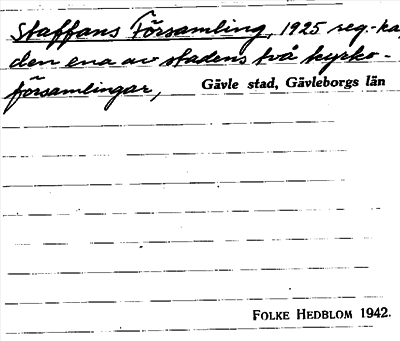 Staffans Församling, 1925 reg.-ka,
den ena av stadens två kyrko-
församlingar,
Gävle stad, Gävleborgs län
FOLKE HEDBLOM 1942.